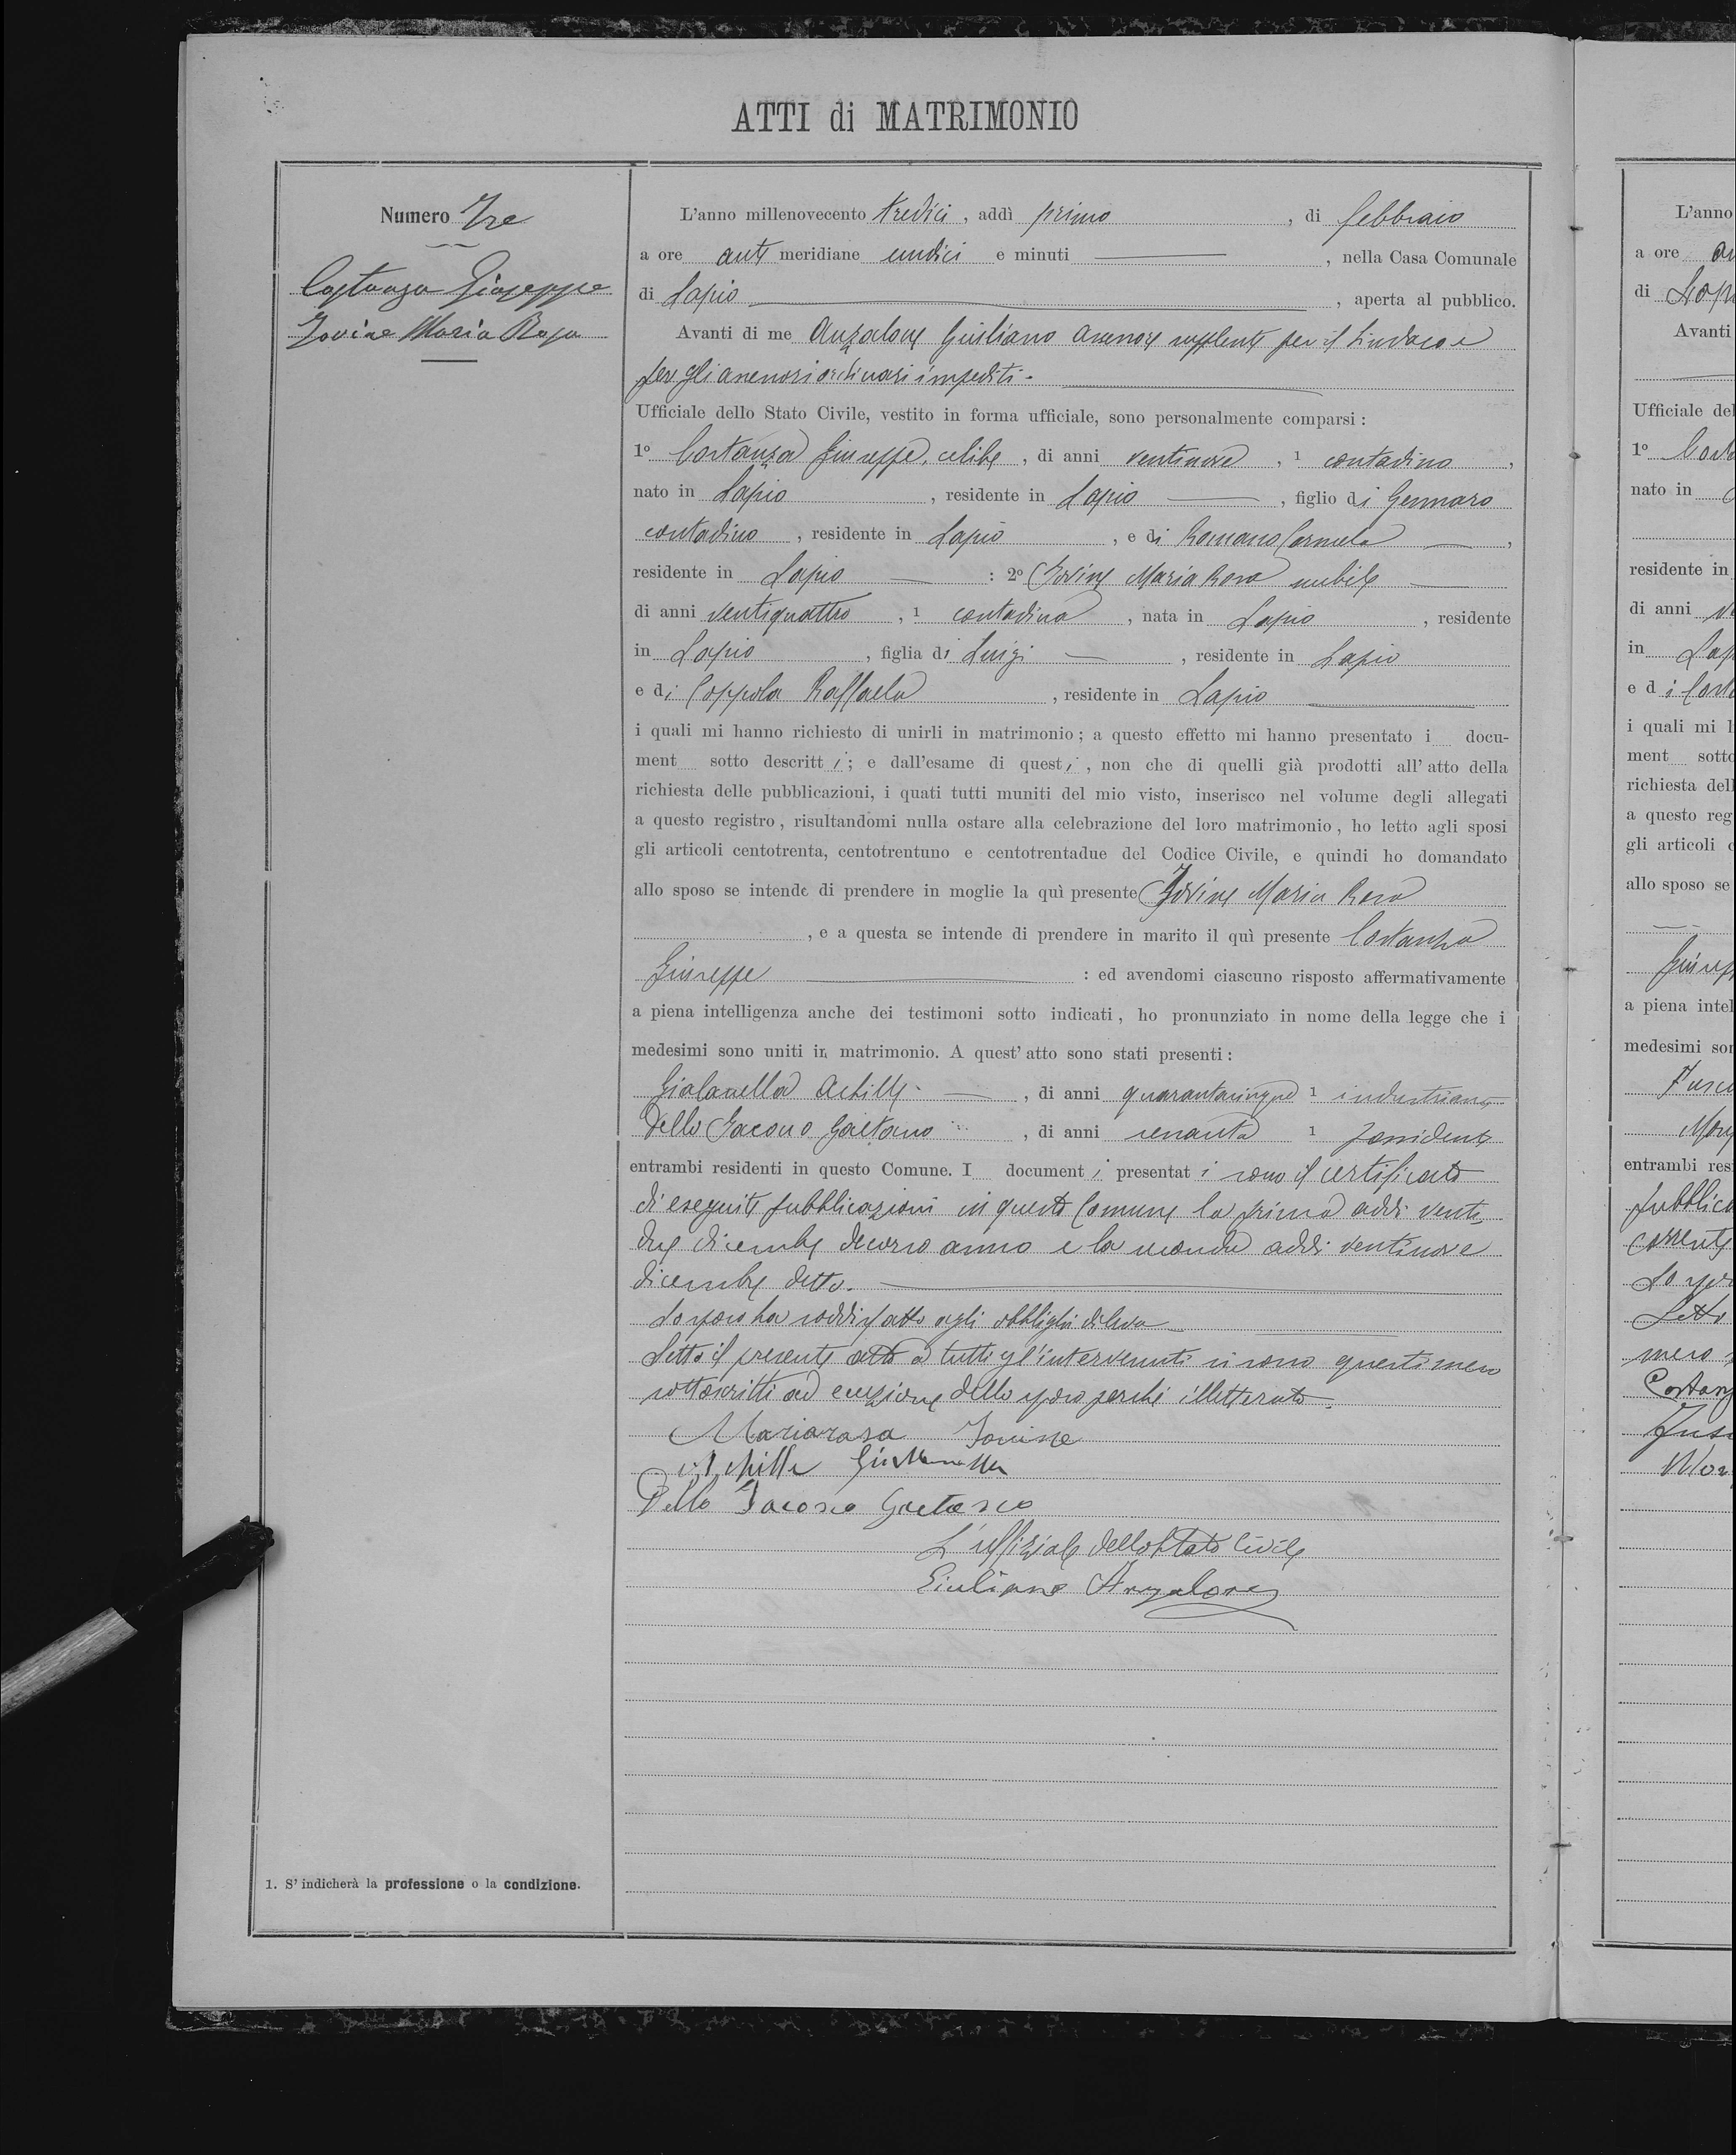 ATTI di MATRIMONIO
Numero Tre
Costanza Giuseppe
Iovine Maria Rosa
L'anno millenovecento tredici, addì primo, di febbraio
a ore anti meridiane undici e minuti, nella Casa Comunale
di Lapio, aperta al pubblico.
Avanti di me Anzalone Giuliano assessore supplente per il Sindaco e
per gli assessori ordinari impediti.
Ufficiale dello Stato Civile, vestito in forma ufficiale, sono personalmente comparsi:
1º Costanza Giuseppe, celibe, di anni ventinove, 1 contadino,
nato in Lapio, residente in Lapio, figlio di Gennaro
contadino, residente in Lapio, e di Romano Carmela,
residente in Lapio : 2º Iovine Maria Rosa nubile
di anni ventiquattro, 1 contadina, nata in Lapio, residente
in Lapio, figlia di Luigi, residente in Lapio
e di Coppola Raffaela, residente in Lapio
i quali mi hanno richiesto di unirli in matrimonio; a questo effetto mi hanno presentato i docu-
ment sotto descritti; e dall'esame di questi, non che di quelli già prodotti all'atto della
richiesta delle pubblicazioni, i quati tutti muniti del mio visto, inserisco nel volume degli allegati
a questo registro, risultandomi nulla ostare alla celebrazione del loro matrimonio, ho letto agli sposi
gli articoli centotrenta, centotrentuno e centotrentadue del Codice Civile, e quindi ho domandato
allo sposo se intende di prendere in moglie la quì presente Iovine Maria Rosa
, e a questa se intende di prendere in marito il quì presente Costanza
Giuseppe : ed avendomi ciascuno risposto affermativamente
a piena intelligenza anche dei testimoni sotto indicati, ho pronunziato in nome della legge che i
medesimi sono uniti in matrimonio. A quest'atto sono stati presenti:
Gialanella Achille, di anni quarantacinque 1 industriante
Dello Iacono Gaetano, di anni sessanta 1 possidente
entrambi residenti in questo Comune. I documenti presentati sono il certificato
di eseguite pubblicazioni in questo Comune la prima addì venti
due dicembre decorso anno e la seconda addì ventinove
dicembre detto.
Lo sposo ha soddisfatto agli obblighi di leva
Letto il presente atto a tutti gl'intervenuti si sono questi meco
sottoscritti ad eccezione dello sposo perché illetterato.
Mariarosa Iovine
Achille Gialanella
Dello Iacono Gaetano
L'uffiziale dello Stato Civile
Giuliano Anzalone
1. S'indicherà la professione o la condizione.
L'anno
a ore
di
Avanti
Ufficiale del
1º
nato in
residente in
di anni
in
e di
i quali mi
ment sotto
richiesta dell
a questo reg
gli articoli
allo sposo se
a piena intel
medesimi son
entrambi res